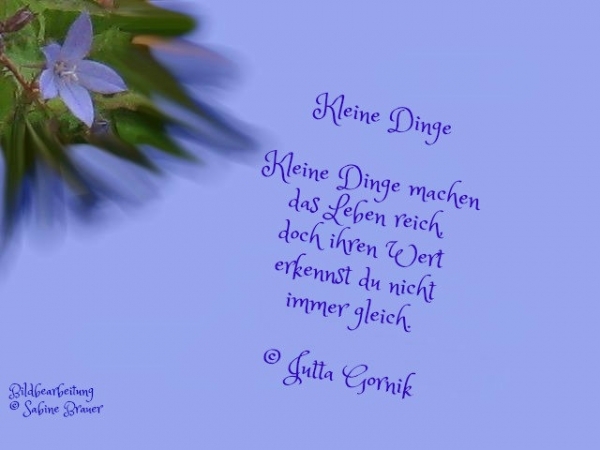 Kleine Dinge
Kleine Dinge machen
das Leben reich,
doch ihren Wert
erkennst du nicht
immer gleich.
© Jutta Gornik
Bildbearbeitung
© Sabine Brauer